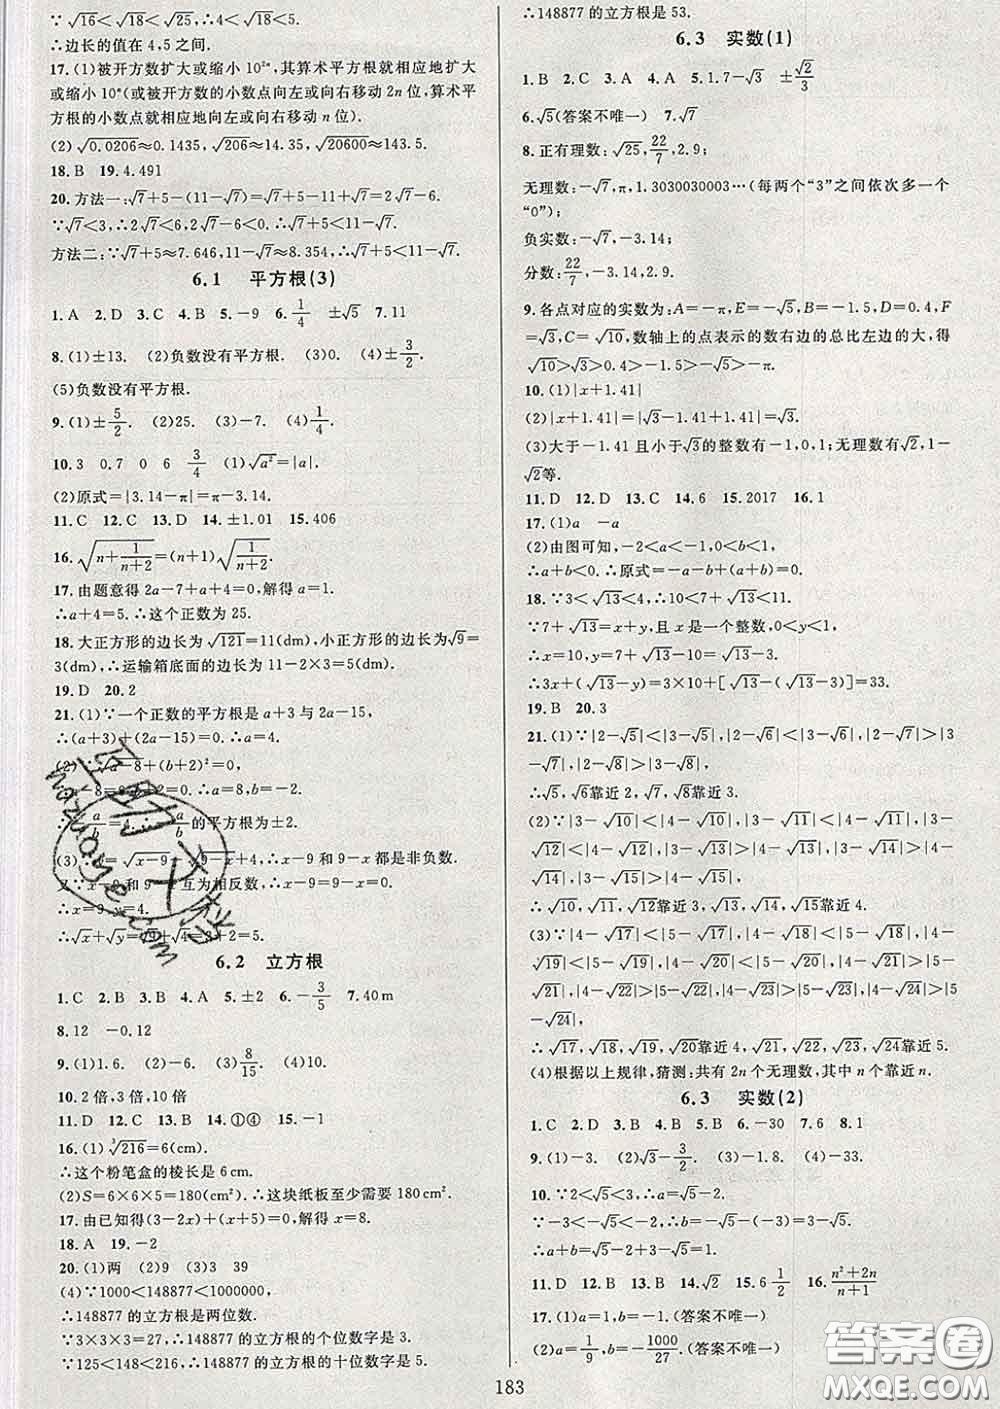 ∵√16<√18<√25,∴4<√18<5.
∴边长的值在4,5之间.
17.(1)被开方数扩大或缩小10²ⁿ,其算术平方根就相应地扩大
或缩小10ⁿ(或被开方数的小数点向左或向右移动2n位,算术平
方根的小数点就相应地向左或向右移动n位).
(2)√0.0206≈0.1435,√206≈14.35,√20600≈143.5.
18.B 19.4.491
20.方法一:√7+5-(11-√7)=√7+5-11+√7=2√7-6.
∵√7<3,∴2√7<6,2√7-6<0.∴√7+5<11-√7.
方法二:∵√7+5≈7.646,11-√7≈8.354,∴√7+5<11-√7.
6.1 平方根(3)
1.A 2.D 3.C 4.B 5.-9 6.1/4 ±√5 7.11
8.(1)±13. (2)负数没有平方根. (3)0. (4)±3/2.
(5)负数没有平方根.
9.(1)±5/2. (2)25. (3)-7. (4)1/4.
10.3 0.7 0 6 3/4 (1)√a²=|a|.
(2)原式=|3.14-π|=π-3.14.
11.C 12.C 13.D 14.±1.01 15.406
16.√(n+1/(n+2))=(n+1)√(1/(n+2)).
17.由题意得2a-7+a+4=0,解得a=1.
∴a+4=5.∴这个正数为25.
18.大正方形的边长为√121=11(dm),小正方形的边长为√9=
3(dm),∴运输箱底面的边长为11-2×3=5(dm).
19.D 20.2
21.(1)∵一个正数的平方根是a+3与2a-15,
∴(a+3)+(2a-15)=0.∴a=4.
(2)∵√a-8+(b+2)²=0,
∴a-8=0,b+2=0.∴a=8,b=-2.
∴-a/b=4.∴-a/b的平方根为±2.
(3)∵y=√x-9-√9-x+4,∴x-9和9-x都是非负数.
又∵x-9和9-x互为相反数,∴x-9=9-x=0.
∴x=9,y=4.
∴√x+√y=√9+√4=3+2=5.
6.2 立方根
1.C 2.B 3.B 4.A 5.±2 6.-3/5 7.40m
8.12 -0.12
9.(1)1.6. (2)-6. (3)8/15. (4)10.
10.2倍,3倍,10倍
11.D 12.C 13.B 14.①④ 15.-1
16.(1)∛216=6(cm).
∴这个粉笔盒的棱长是6cm.
(2)S=6×6×5=180(cm²).∴这块纸板至少需要180cm².
17.由已知得(3-2x)+(x+5)=0,解得x=8.
18.A 19.-2
20.(1)两 (2)9 (3)3 39
(4)∵1000<148877<1000000,
∴148877的立方根是两位数.
∵3×3×3=27,∴148877的立方根的个位数字是3.
∵125<148<216,∴148877的立方根的十位数字是5.
∴148877的立方根是53.
6.3 实数(1)
1.B 2.C 3.A 4.A 5.1.7-√3 ±√2/3
6.√5(答案不唯一) 7.√7
8.正有理数:√25,22/7,2.9;
无理数:-√7,π,1.3030030003…(每两个“3”之间依次多一个
“0”);
负实数:-√7,-3.14;
分数:22/7,-3.14,2.9.
9.各点对应的实数为:A=-π,E=-√5,B=-1.5,D=0.4,F
=√3,C=√10,数轴上的点表示的数右边的总比左边的大,得
√10>√3>0.4>-1.5>-√5>-π.
10.(1)|x+1.41|
(2)|x+1.41|=|√3-1.41+1.41|=√3.
(3)大于-1.41且小于√3的整数有-1,0,1;无理数有√2,1-
√2等.
11.D 12.D 13.C 14.6 15.2017 16.1
17.(1)a -a
(2)由图可知,-2<a<-1,0<b<1,
∴a+b<0.∴原式=-a-b+(a+b)=0.
18.∵3<√13<4,∴10<7+√13<11.
∵7+√13=x+y,且x是一个整数,0<y<1,
∴x=10,y=7+√13-10=√13-3.
∴3x+(√13-y)=3×10+[√13-(√13-3)]=33.
19.B 20.3
21.(1)∵|2-√5|<|3-√5|,|2-√6|<|3-√6|,|2-√7|>|3-
√7|,|2-√8|>|3-√8|,
∴√5,√6靠近2,√7,√8靠近3.
(2)∵|3-√10|<|4-√10|,|3-√11|<|4-√11|,|3-
√12|<|4-√12|,|3-√13|>|4-√13|,|3-√14|>|4-
√14|,|3-√15|>|4-√15|,
∴√10,√11,√12靠近3,√13,√14,√15靠近4.
(3)∵|4-√17|<|5-√17|,|4-√18|<|5-√18|,|4-
√19|<|5-√19|,|4-√20|<|5-√20|,|4-√21|>|5-
√21|,|4-√22|>|5-√22|,|4-√23|>|5-√23|,|4-√24|>|5-
√24|,
∴√17,√18,√19,√20靠近4,√21,√22,√23,√24靠近5.
(4)根据以上规律,猜测:共有2n个无理数,其中n个靠近n.
6.3 实数(2)
1.C 2.D 3.A 4.B 5.B 6.-30 7.6 8.1
9.(1)-3. (2)√5-3/2. (3)-1. (4)-33.
10.∵2<√5<3,∴a=√5-2.
∵-3<-√5<-2,∴b=-√5-(-3)=3-√5.
∴a+b=√5-2+3-√5=1.
11.D 12.B 13.B 14.√2 15.6 1/2 16.(n²+2n)/(n+1)
17.(1)a=1,b=-1.(答案不唯一)
(2)a=1/9,b=-1000/27.(答案不唯一)
183
答案圈
MXQE.COM